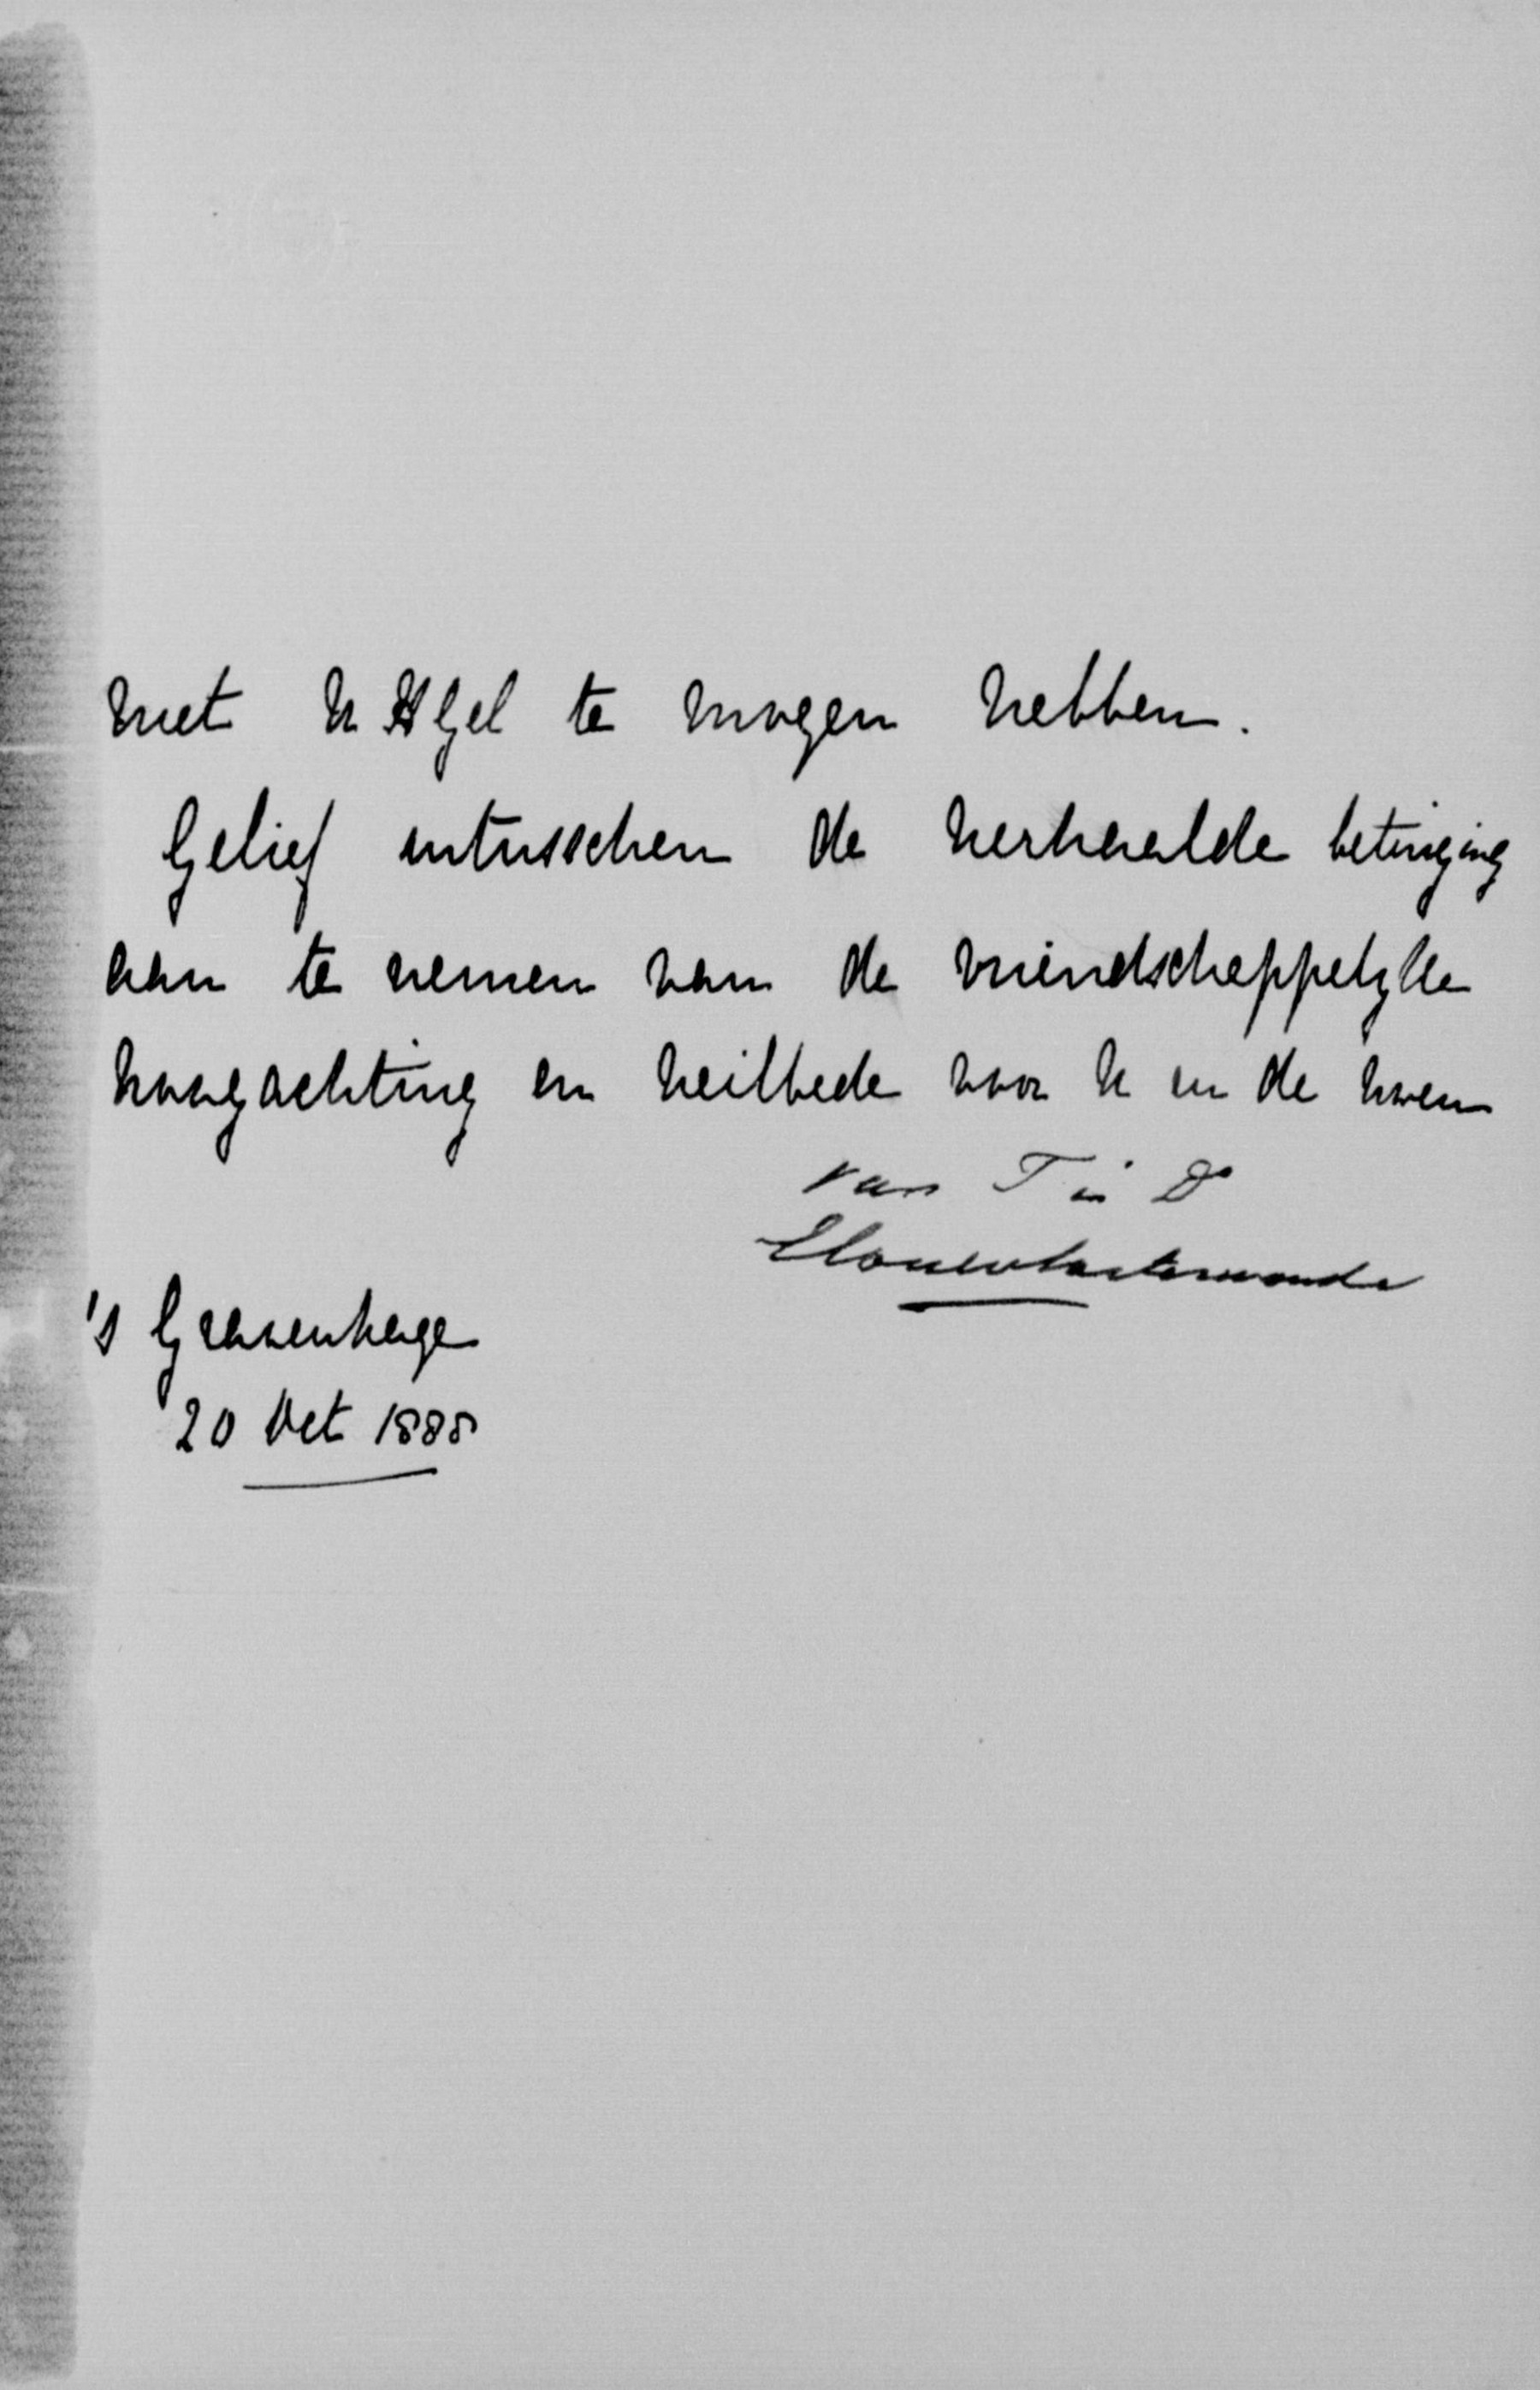 met U HGel te mogen hebben.
Gelief intusschen de herhaalde betuiging
aan te nemen van de vriendschappelyke
hoogachting en heilbede voor U en de uwen
van T in D
Eloutvsoeterwoude
's Gravenhage
20 Oct 1888